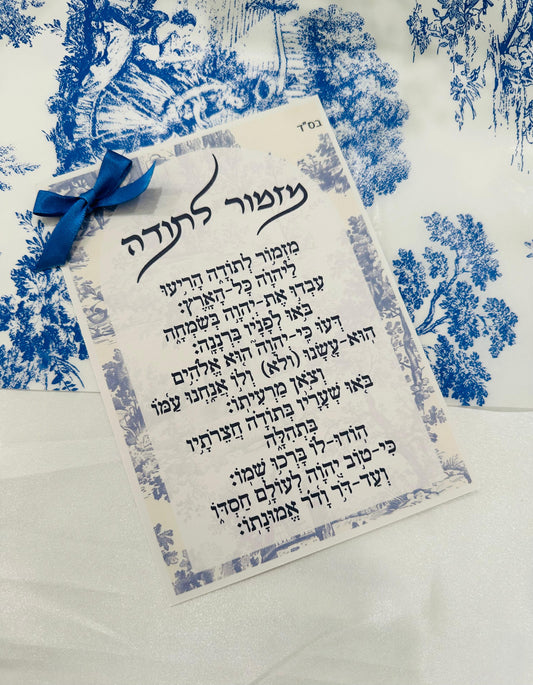 בס"ד
מזמור לתודה
מִזְמ֥וֹר לְתוֹדָ֑ה הָרִ֥יעוּ
לַ֝יהוָ֗ה כָּל-הָאָֽרֶץ:
עִבְד֣וּ אֶת-יְהוָ֣ה בְּשִׂמְחָ֑ה
בֹּ֥אוּ לְ֝פָנָ֗יו בִּרְנָנָֽה:
דְּע֗וּ כִּֽי-יְהוָה֮ ה֤וּא אֱלֹ֫הִ֥ים
הֽוּא-עָ֭שָׂנוּ (ולא) וְל֣וֹ אֲנַ֑חְנוּ עַ֝מּ֗וֹ
וְצֹ֣אן מַרְעִיתֽוֹ:
בֹּ֤אוּ שְׁעָרָ֨יו בְּתוֹדָ֗ה חֲצֵרֹתָ֥יו
בִּתְהִלָּ֑ה
הֽוֹדוּ-ל֝֗וֹ בָּרֲכ֥וּ שְׁמֽוֹ:
כִּי-ט֣וֹב יְ֭הוָה לְעוֹלָ֣ם חַסְדּ֑וֹ
וְעַד-דֹּ֥ר וָ֝דֹ֗ר אֱמוּנָתֽוֹ: